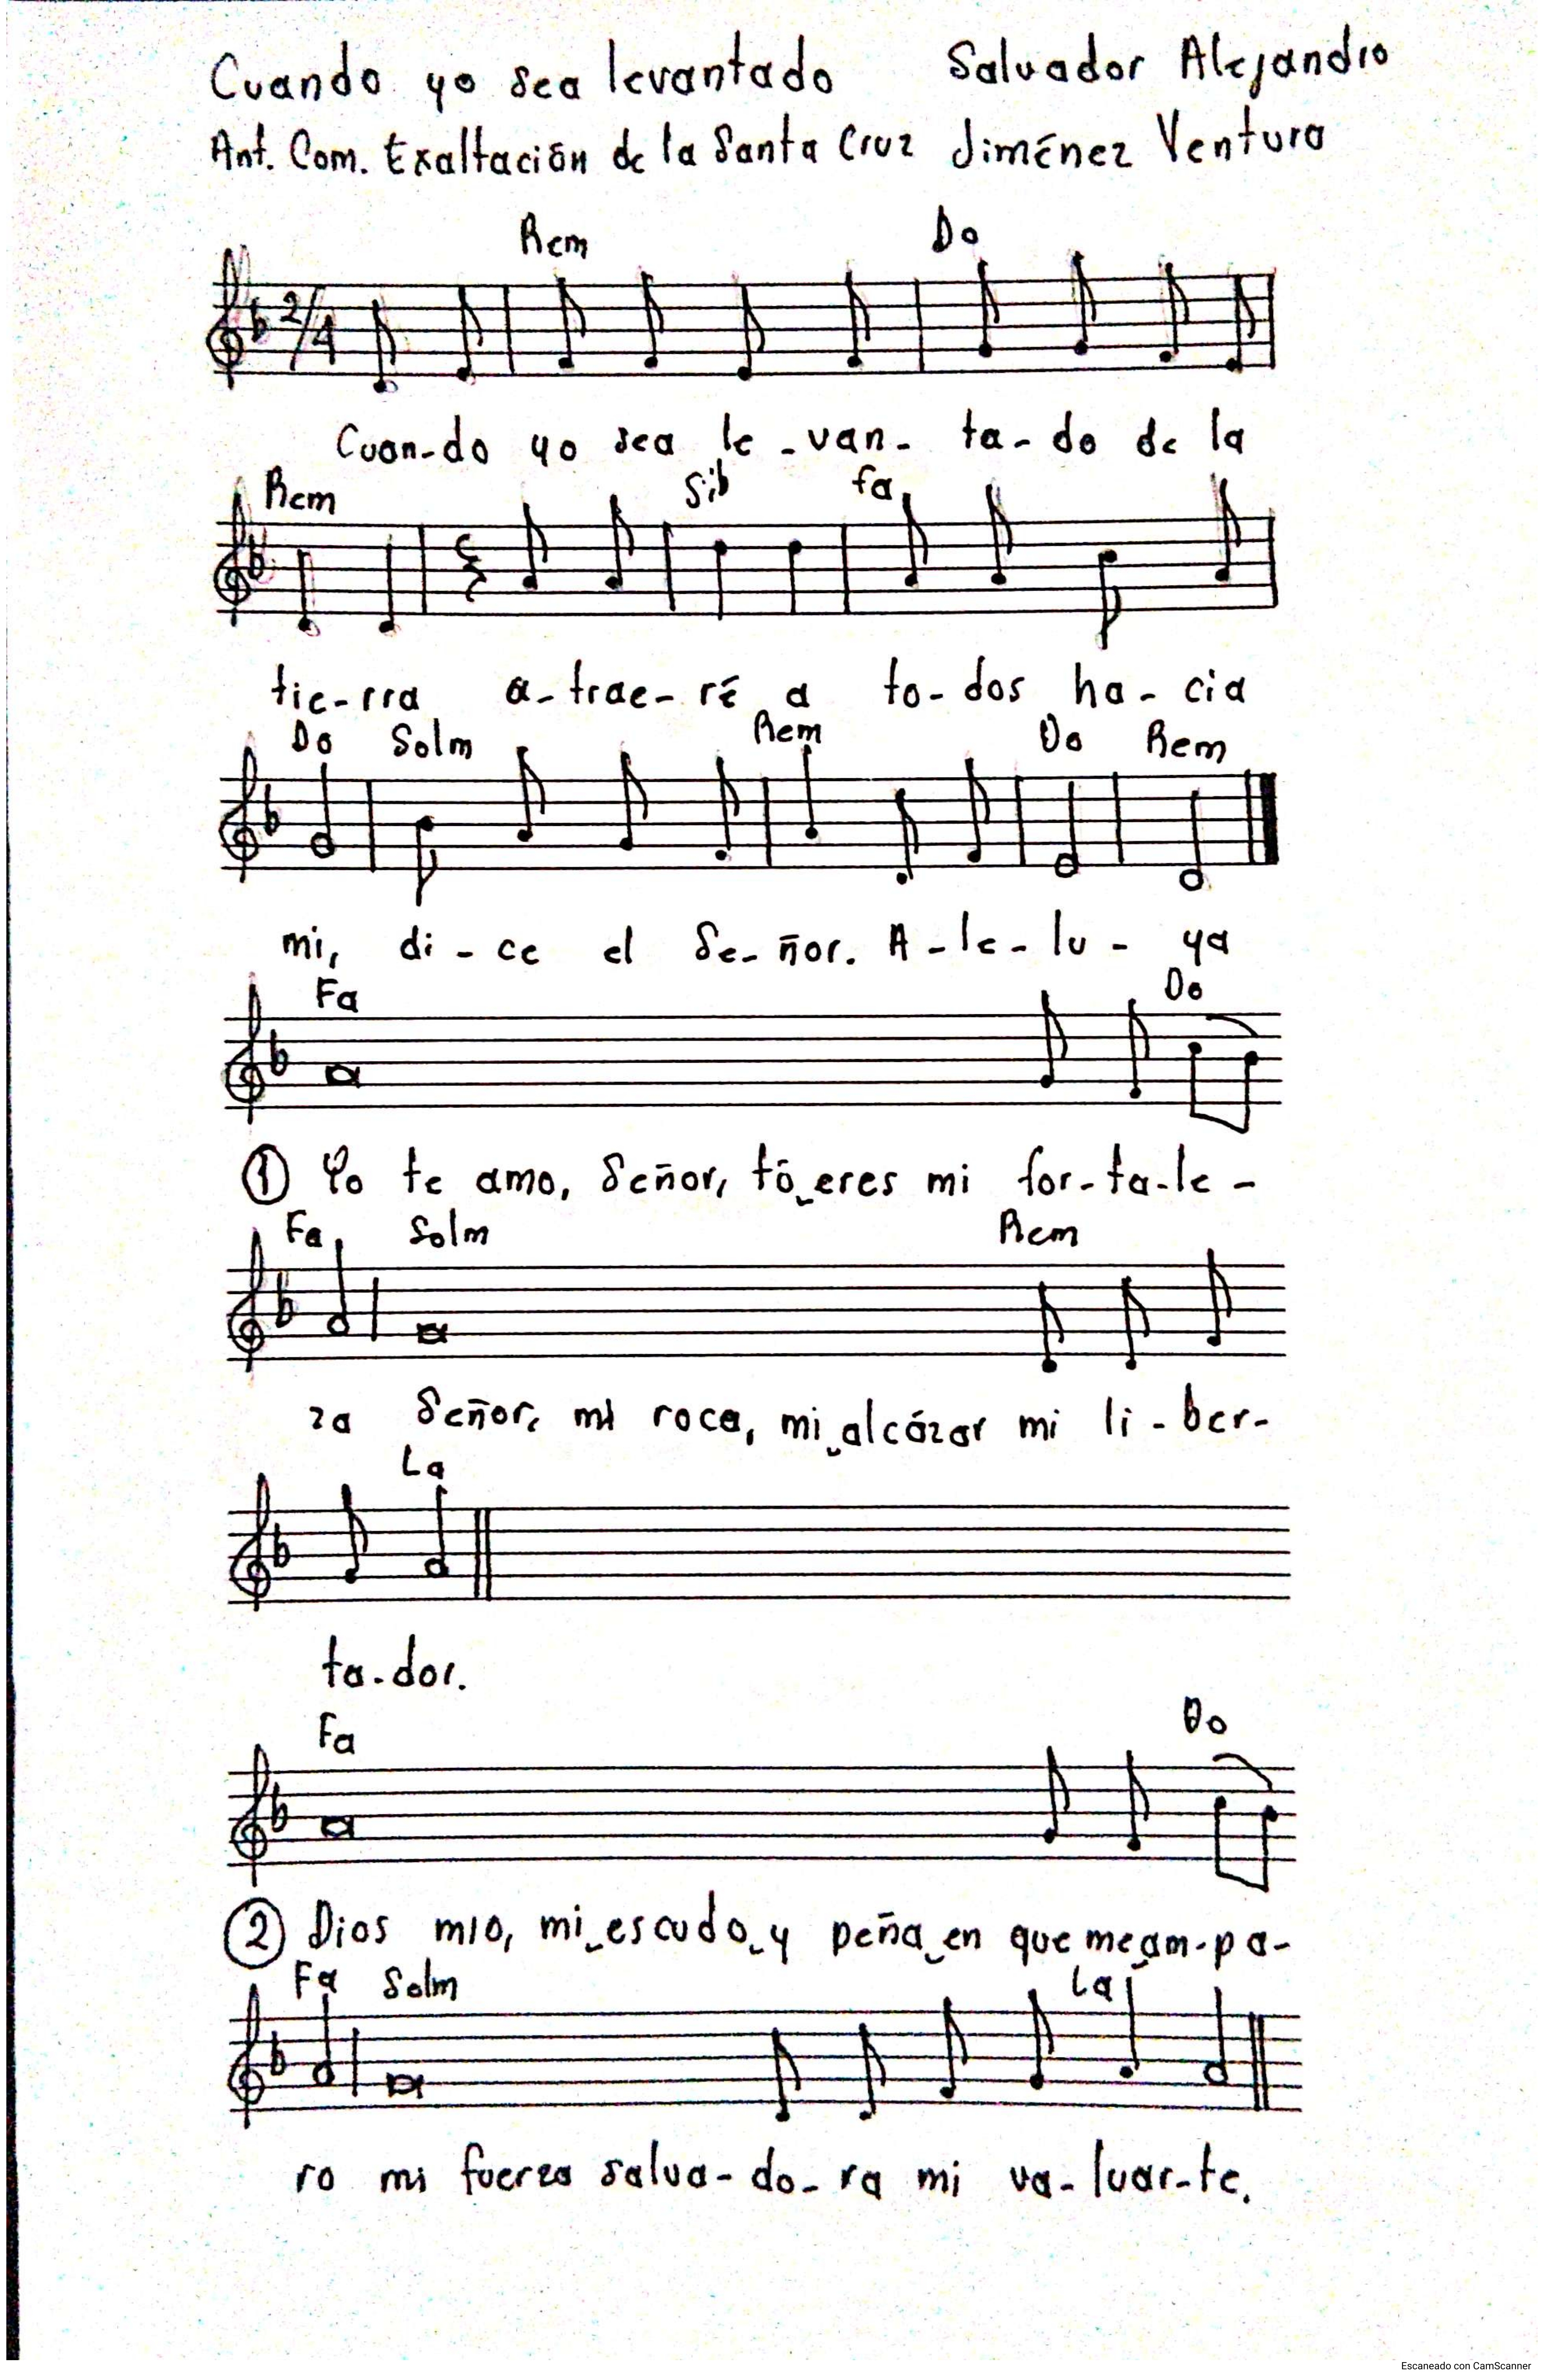 Cuando yo sea levantado Salvador Alejandro
Ant. Com. Exaltación de la Santa Cruz Jiménez Ventura
Rem Do
2/4
Cuan-do yo sea le-van- ta-do de la
Rem Sib fa
tie-rra a-trae-ré a to-dos ha-cia
Do Solm Rem Do Rem
mi, di-ce el Se-ñor. A-le-lu- ya
Fa Do
1 Yo te amo, Señor, tú eres mi for-ta-le-
Fa Solm Rem
za Señor, mi roca, mi alcázar mi li-ber-
La
ta-dor.
Fa Do
2 Dios mio, mi escudo y peña en que me am-pa-
Fa Solm La
ro mi fuerza salva-do-ra mi va-luar-te.
Escaneado con CamScanner